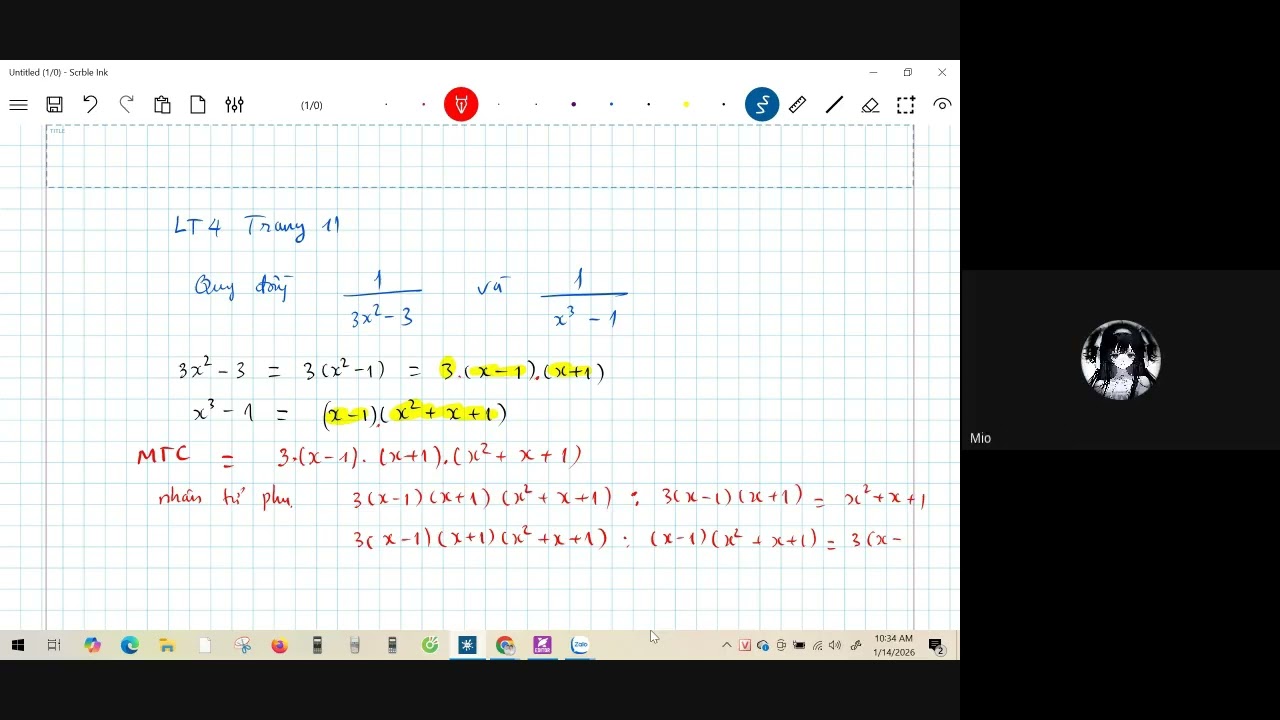 Untitled (1/0) - Scrble Ink
(1/0)
TITLE
LT4 Trang 11
Quy đồng 1/(3x² - 3) và 1/(x³ - 1)
3x² - 3 = 3(x² - 1) = 3.(x - 1).(x+1)
x³ - 1 = (x - 1).(x² + x + 1)
MTC = 3.(x - 1).(x+1).(x² + x + 1)
nhân tử phụ. 3(x - 1)(x+1)(x² + x + 1) : 3(x - 1)(x+1) = x² + x + 1
3(x - 1)(x+1)(x² + x + 1) : (x - 1)(x² + x + 1) = 3(x -
Mio
Zalo
EDITOR
V
10:34 AM
1/14/2026
2